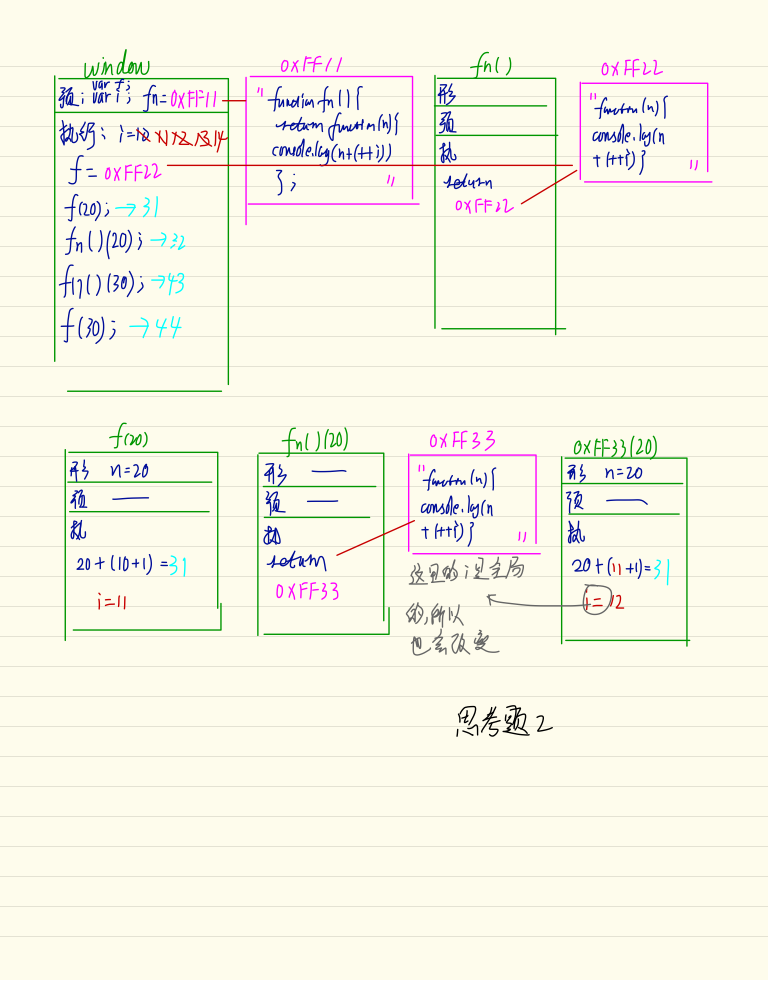 window
预: var i; var f; fn=0XFF11
执行: i=10 11 12 13 14
f= 0XFF22
f(20); →31
fn()(20); →32
fn()(30); →43
f(30); →44
0XFF11
" function fn(){
return function(n){
console.log(n+(++i))
}; "
fn()
形
预
执
return
0XFF22
0XFF22
" function(n){
console.log(n
+(++i)} "
f(20)
形 n=20
预 —
执
20+(10+1)=31
i=11
fn()(20)
形 —
预 —
执
return
0XFF33
0XFF33
" function(n){
console.log(n
+(++i)} "
这里的i是全局
的,所以
也会改变
0XFF33(20)
形 n=20
预 —
执
20+(11+1)=31
i=12
思考题2